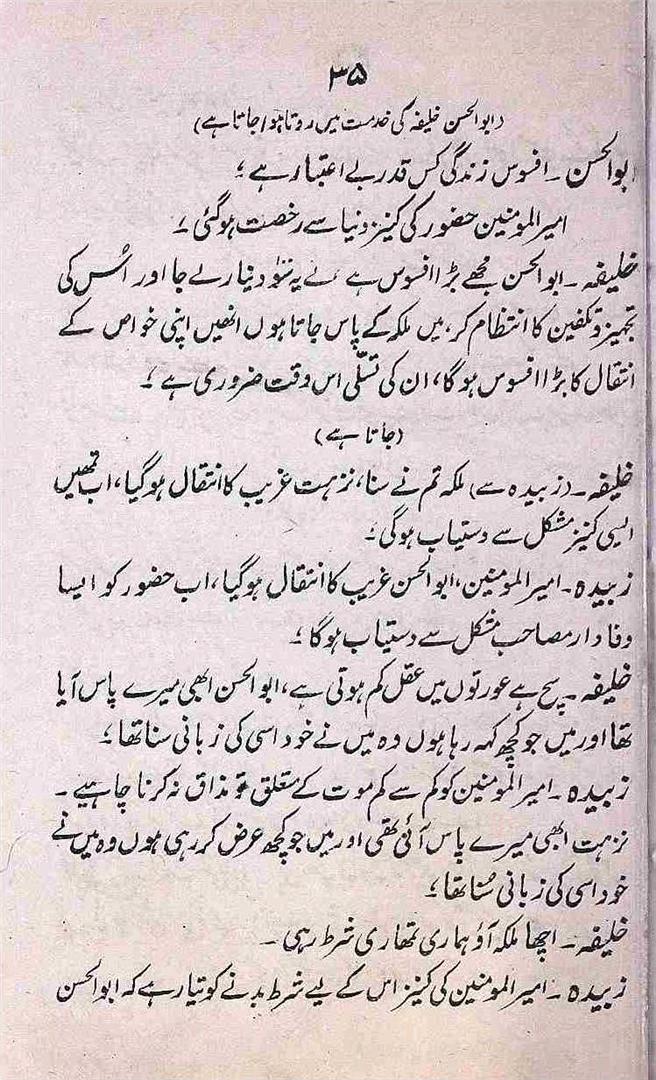 ۳۵
(ابوالحسن خلیفہ کی خدمت میں روتا ہوا جاتا ہے)
ابوالحسن ۔ افسوس زندگی کس قدر بے اعتبار ہے ؛
امیرالمومنین حضور کی کنیز دنیا سے رخصت ہوگئی ۔
خلیفہ ۔ ابوالحسن مجھے بڑا افسوس ہے لے یہ سَو دینار لے جا اور اُس کی
تجہیز و تکفین کا انتظام کر، میں ملکہ کے پاس جاتا ہوں انھیں اپنی خواص کے
انتقال کا بڑا افسوس ہوگا، ان کی تسلّی اس وقت ضروری ہے ؛
(جاتا ہے)
خلیفہ ۔ (زبیدہ سے) ملکہ تم نے سنا، نزہت غریب کا انتقال ہوگیا، اب تمھیں
ایسی کنیز مشکل سے دستیاب ہوگی ۔
زبیدہ ۔ امیرالمومنین، ابوالحسن غریب کا انتقال ہوگیا، اب حضور کو ایسا
وفادار مصاحب مشکل سے دستیاب ہوگا ؛
خلیفہ ۔ سچ ہے عورتوں میں عقل کم ہوتی ہے، ابوالحسن ابھی میرے پاس آیا
تھا اور میں جو کچھ کہہ رہا ہوں وہ میں نے خود اسی کی زبانی سنا تھا ؛
زبیدہ ۔ امیرالمومنین کو کم سے کم موت کے متعلق تو مذاق نہ کرنا چاہیے ۔
نزہت ابھی میرے پاس آئی تھی اور میں جو کچھ عرض کر رہی ہوں وہ میں نے
خود اسی کی زبانی سُنا تھا ؛
خلیفہ ۔ اچھا ملکہ آؤ ہماری تمھاری شرط رہی ۔
زبیدہ ۔ امیرالمومنین کی کنیز اس کے لیے شرط بدنے کو تیار ہے کہ ابوالحسن